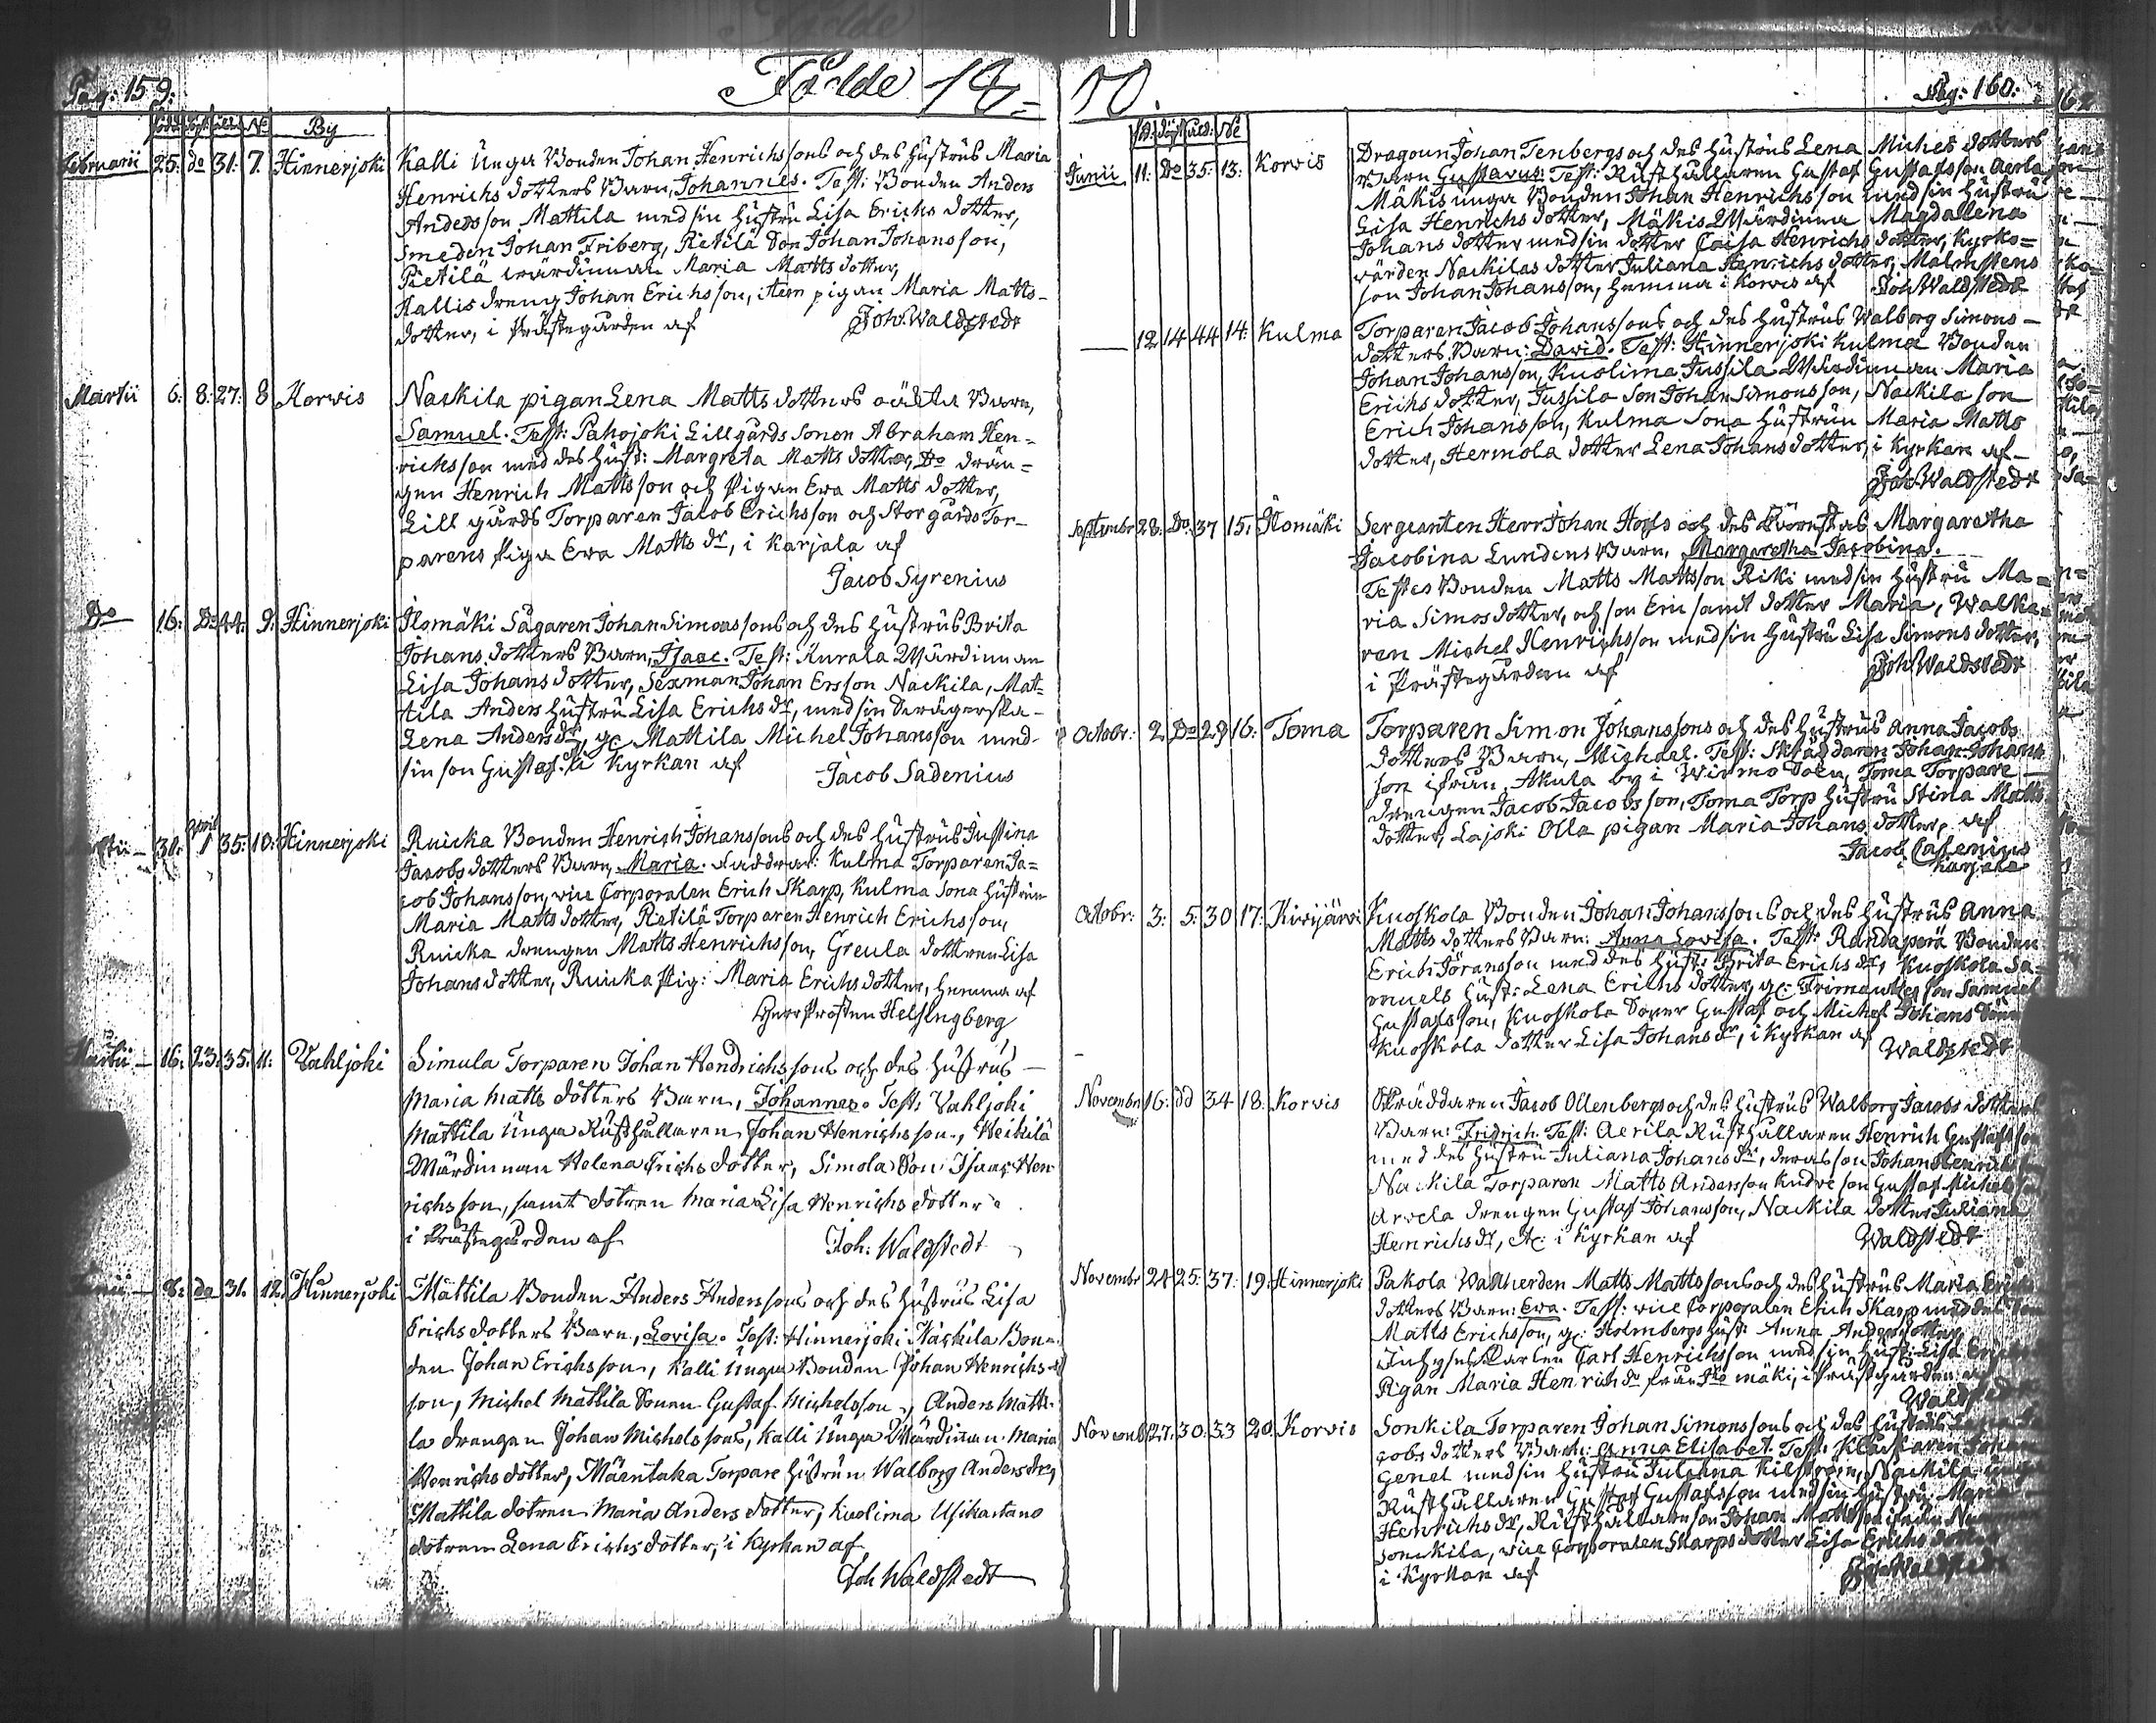 Pag: 159.
Födde 17
Född Döpt ålder No By
Februarii 25. do 31. 7. Hinnerjoki
Kalli Unga Bonden Johan Henrichssons och des hustrus Maria
Henrichs dotters Barn, Johannes. Test: Bonden Anders
Andersson Mattila med sin hustru Lisa Erichs dotter,
Smeden Johan Friberg, Pietilä Son Johan Johansson,
Pietilä wärdinnan Maria Matts dotter,
Kallis dreng Johan Erichsson, item pigan Maria Matts-
dotter, i Prästegården af Joh: Waldstedt
Martii 6. 8. 27. 8 Korvis
Nackila pigan Lena Matts dotters oäckta Barn,
Samuel. Test: Pahojoki Lillgårds Sonen Abraham Hen=
richsson med des hust: Margreta Matts dotter, Do drän=
gen Henrich Mattsson och Pigan Ewa Matts dotter,
Lillgårds Torparen Jacob Erichsson och Storgårds Tor-
parens Piga Ewa Matts dr, i Karjala af
Jacob Syrenius
Do 16. Do 44. 9. Hinnerjoki
Ilomäki Sågaren Johan Simonssons och des hustrus Brita
Johans dotters Barn, Isaac. Test: Kurala Wärdinnan
Lisa Johans dotter, Sexman Johan Ersson Nackila, Mat=
tila Anders hustru Lisa Erichs dr, med sin Swägerska
Lena Anders dr, gc Mattila Michel Johansson med
sin son Gustaf. i Kyrkan af Jacob Sadenius
30. April 1 35. 10. Hinnerjoki
Ruicka Bonden Henrich Johanssons och des hustrus Justina
Jacobs dotters Barn, Maria. Faddrar: Kulma Torparen Ja=
cob Johansson, vice Corporalen Erich Skarp, Kulma Sona hustrun
Maria Matts dotter, Pietilä Torparen Henrich Erichsson,
Ruicka drengen Matts Henrichsson, Greula dottren Lisa
Johans dotter, Ruicka Pig: Maria Erichs dotter, hemma af
Herr Prosten Helsingberg
Martii 16. 23. 35. 11. Vahljoki
Simula Torparen Johan Hendrichssons och des Hustrus
Maria Matts dotters Barn, Johannes. Test: Vahljoki
Mattila Unga Rusthållaren Johan Henrichsson, Heikilä
Wärdinnan Helena Erichs dotter, Simola Son Isaac Hen
richsson, samt dotren Maria Lisa Henrichs dotter.
i Prästegården af Joh: Waldstedt
Junii 8. do 31. 12. Hinnerjoki
Mattila Bonden Anders Anderssons och des hustrus Lisa
Erichs dotters Barn, Lovisa. Test: Hinnerjoki Nackila Bon-
den Johan Erichsson, Kalli Unga Bonden Johan Henrichs
son, Michel Mattila Sonen Gustaf Michelsson, Anders Matti-
la drengen Johan Michelssons, Kalli Unga Wärdinnan Maria
Henrichs dotter, Mäentaka Torpare hustrun Walborg Anders dr,
Mattila dotren Maria Anders dotter, Kuolima Usikartano
dotren Lena Erichs dotter, i Kyrkan af
Joh Waldstedt
70.
Pag: 160.
Junii 11. Do 35. 13. Korvis
Dragoun Johan Tenbergs och des hustrus Lena Michels dotters
Barn Gustavus. Test: Rusthållaren Gustaf Gustafsson Aerla,
Mäkis unga Bonden Johan Henrichsson med sin hustru
Lisa Henrichs dotter, Mäkis Wärdinna Magdallena
Johans dotter med sin dotter Caisa Henrichs dotter, Kyrko=
värden Nackilas dotter Juliana Henrichs dotter, Malmstens
son Johan Johansson, hemma i Korvis af Joh Waldstedt
12 14 44 14. Kulma
Torparen Jacob Johanssons och des hustrus Walborg Simons-
dotters Barn: David. Test: Hinnerjoki Kulma Bonden
Johan Johansson, Kuolima Jussila Wärdinnan Maria
Erichs dotter, Jussila Son Johan Simonsson, Nackila son
Erich Johansson, Kulma Sona hustrun Maria Matts
dotter, Hermola dotter Lena Johans dotter, i Kyrkan af
Joh Waldstedt
Septembr 28. Do. 37 15. Ilomäki
Sergeanten Herr Johan och des Margaretha
Jacobina Lundens Barn, Margaretha Jacobina.
Testes Bonden Matts Mattsson Riki med sin hustru Ma=
ria Simos dotter, och son Eric samt dotter Maria, Walka=
ren Michel Henrichsson med sin hustru Lisa Simons dotter,
i Prästegården af Joh: Waldstedt
Octobr: 2 Do 29 16. Toma
Torparen Simon Johanssons och des hustrus Anna Jacobs
dotters Barn, Michael. Test: Skräddaren Johan Johans
son ifrån Akula by i Wirmo Soken, Toma Torpare
drengen Jacob Jacobsson, Toma Torp hustru Stina Matts
dotter, Lajoki Olla pigan Maria Johans dotter, af
Jacob Calenius
i Karjala
Octobr: 3. 5. 30 17. Kirijärvi
Kuoskola Bonden Johan Johanssons och des hustrus Anna
Matts dotters Barn: Anna Lovisa. Test: Randaperä Bonden
Erich Jöransson med des hust: Brita Erichs dr, Kuoskola Sa=
muels hust: Lena Erichs dotter, gc: son Samuel
Gustafsson, Kuoskola Söner Gustaf och Michel Johans Söner
Kuoskola dotter Lisa Johans dr, i Kyrkan af Waldstedt
Novembr 16. dd 34 18. Korvis
Skräddaren Jacob Ollenbergs och des hustrus Walborg Jacobs dotters
Barn: Fridrich. Test: Aerila Rusthållaren Henrich Gustafsson
med des hustru Juliana Johans dr, deras son Johan Henrichs
Nackila Torparen Matts Andersson Kudre son Gustaf Michels
Arvela drengen Gustaf Johansson, Nackila dotter Juliana
Henrichs dr, etc: i Kyrkan af Waldstedt
Novembr 24 25. 37. 19. Hinnerjoki
Pakola Wallherden Matts Mattssons och des hustrus Maria Erichs
dotters Barn: Ewa. Test: vice Corporalen Erich Skarp med des Son
Matts Erichsson, gc: Holmbergs hust: Anna Anders dotter,
Carl Henrichsson med sin hust: Lisa
Pigan Maria Henrich dr från Ilomäki, i Prästgården af
Waldstedt
Novembr 27. 30. 33 20. Korvis
Sonkila Torparen Johan Simonssons och des hustrus
cobs dotters Barn: Anna Elisabet. Test: Klockaren Johan
Genel med sin hustru Juliana Kilström, Nackila unga
Rusthållaren Gustaf Gustafsson med sin hustru Maria
Henrichs dr, Rusthållaren son Johan Mattsson
Sonckila, vice Corporalen Skarps dotter Lisa Erichs dotter
i Kyrkan af Waldstedt